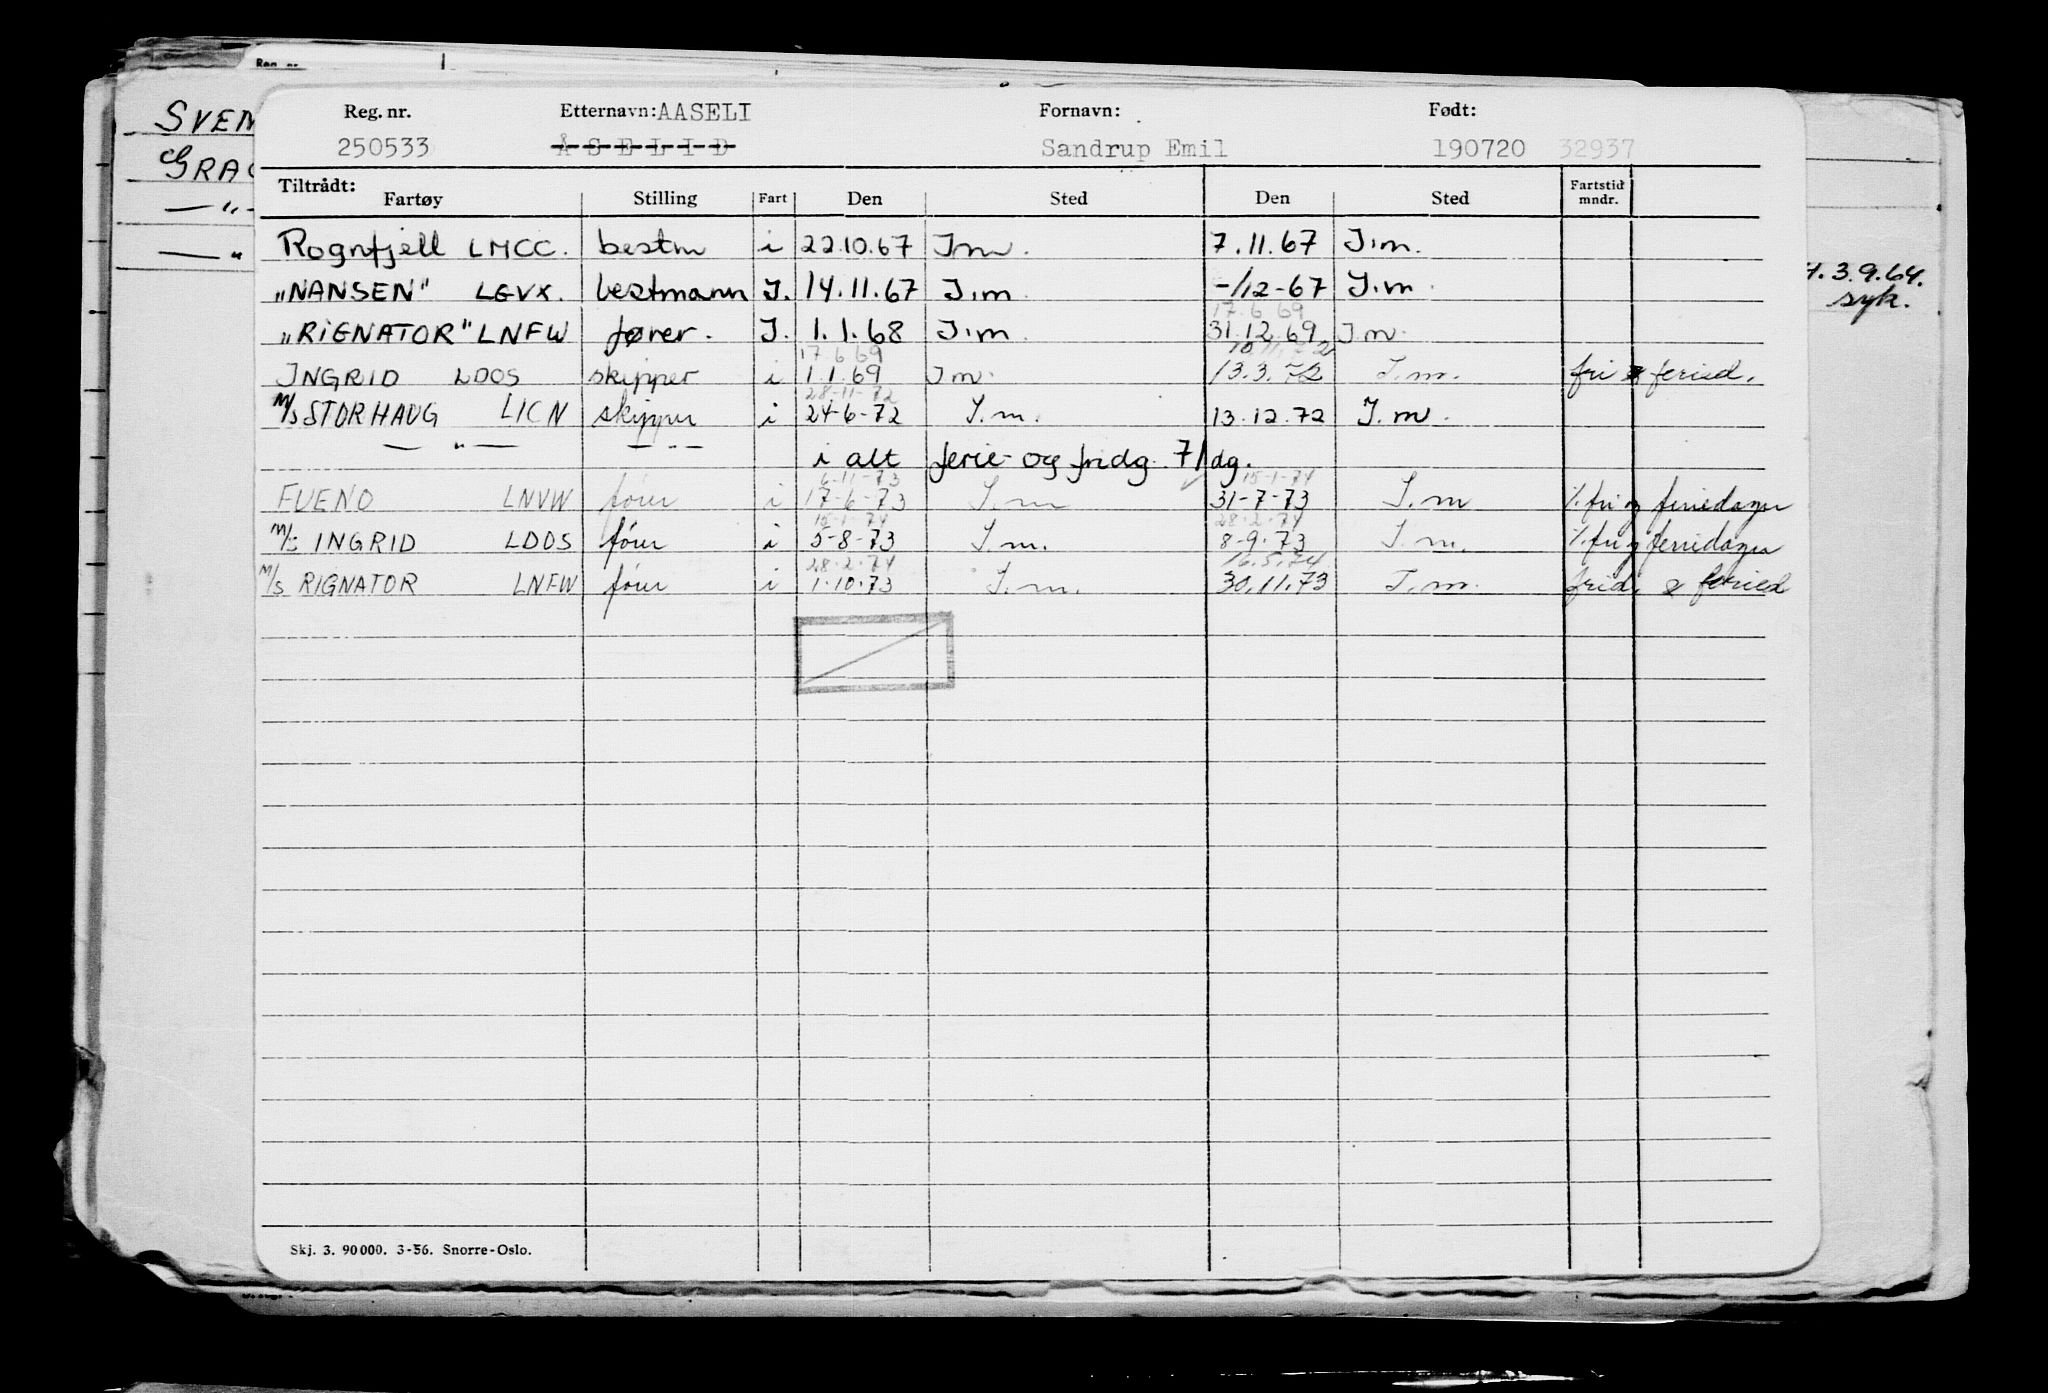 Reg. nr. Etternavn: AASELI Fornavn: Født:
250533 ÅSELID Sandrup Emil 190720 32937
Tiltrådt:
Fartøy Stilling Fart Den Sted Den Sted Fartstid mndr.
Rognfjell LMCC. bestm i 22.10.67 Im. 7.11.67 I.m.
"NANSEN" LGVX. bestmann I. 14.11.67 I.m. -/12-67 I.m.
17.6 69
"RIGNATOR" LNFW fører. I. 1.1.68 I.m. 31.12.69 I.m.
17.6 69 10.11.72
INGRID LDOS skipper i 1.1.69 Im. 13.3.72 I.m. fri & feried.
28-11-72
M/S STORHAUG LICN skipper i 24-6-72 I.m. 13.12.72 I.m.
— " — — " — i alt ferie- og fridg. 71 dg.
6-11-73 15-1-74
FUENO LNVW fører i 17-6-73 I.m 31-7-73 I.m ٪ fri og feriedager
15-1-74 28.2.74
M/S INGRID LDOS fører i 5-8-73 I.m. 8-9.73 I.m. ٪ fri og feriedager
28.2.74 16.5.74
M/S RIGNATOR LNFW fører i 1.10.73 I.m. 30.11.73 I.m. frid. & feried
Skj. 3. 90000. 3-56. Snorre-Oslo.
SVEN
GRAG
— " —
— "
3.9.64.
syk.
Reg. nr.